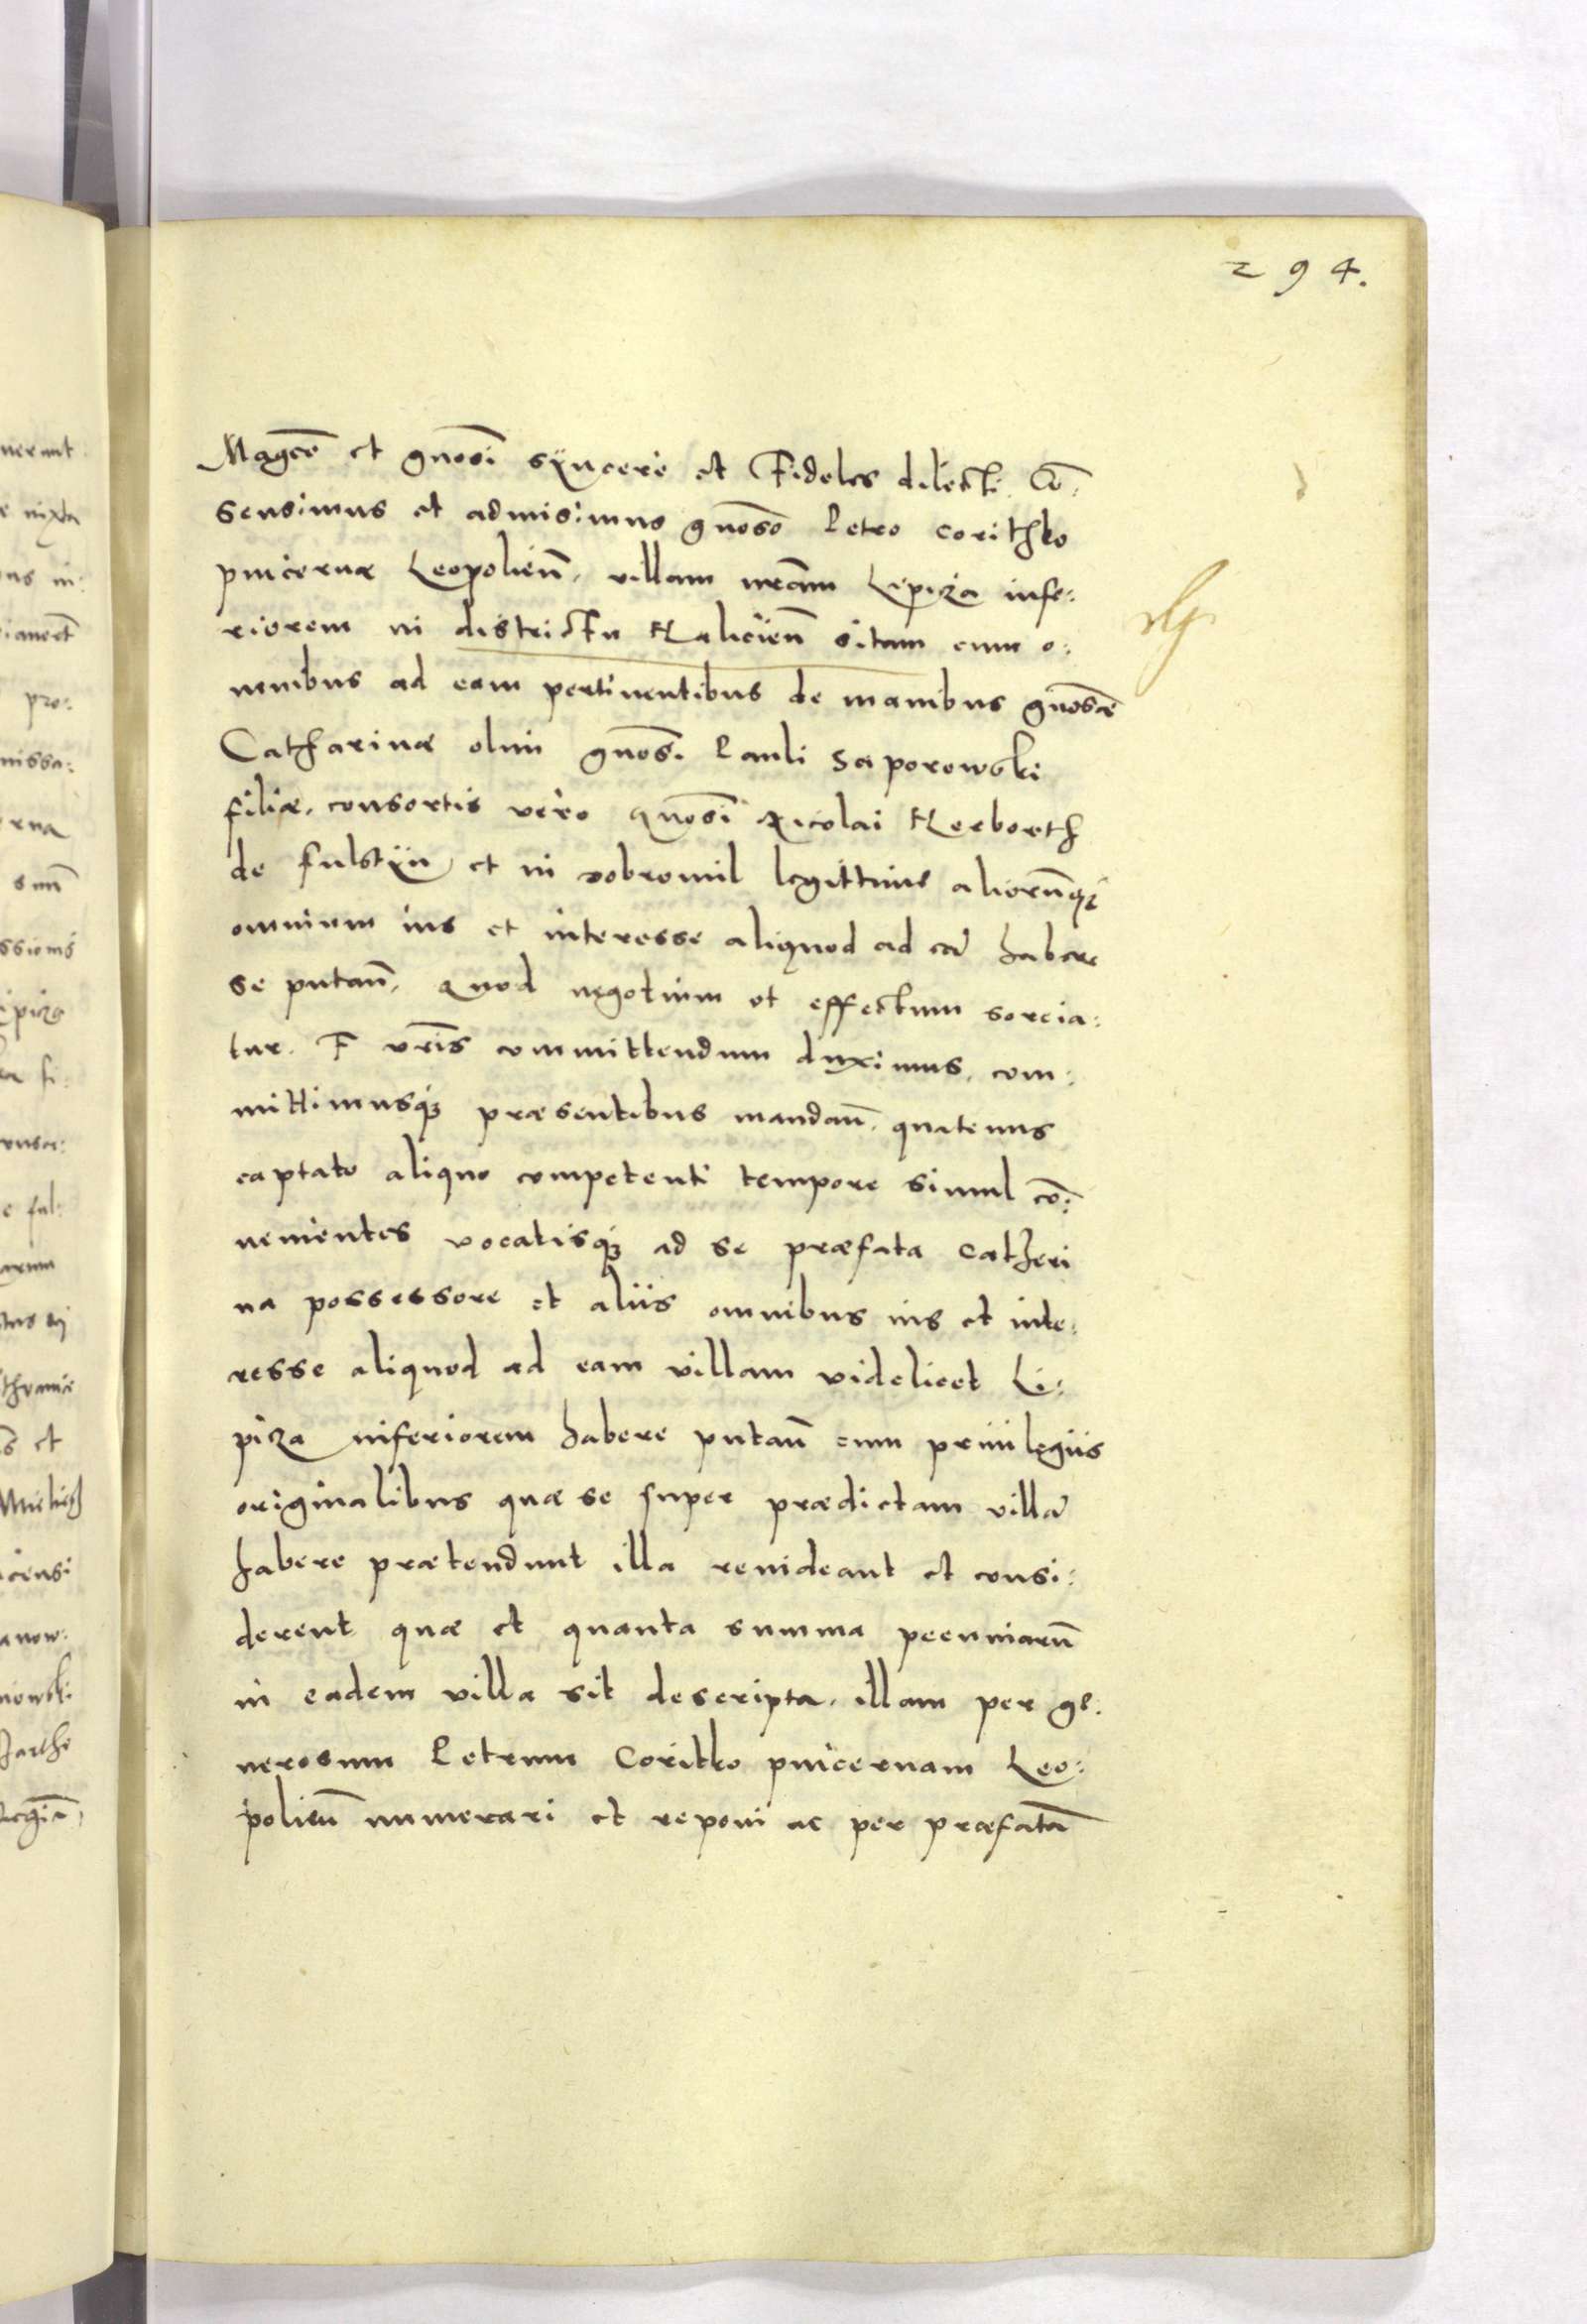 294.
Magcē et gnosi syncere et Fideles dilecti. Cō:
sensimus et admisimus gnoso Petro corithko
pincernæ Leopolien̄, villam nr̄am Lipiza infe:
riorem in districtu Halicien̄ sitam cum o:
mnibus ad eam pertinentibus de manibus gnosæ
Catharinæ olim gnos. Pauli Saporowski
filiæ, consortis vero gnosi Nicolai Herborth
de fulstÿn et in dobromil legittime aliorūqꝫ
omnium ius et interesse aliquod ad eā habere
se putan̄, Quod negotium ut effectum sorcia:
tur. F vr̄is committendum duximus, com:
mittimusqꝫ præsentibus mandan̄, quatenus
captato aliquo competenti tempore simul cō:
uenientes vocatisqꝫ ad se præfata Catheri
na possessore et aliis omnibus ius et inte:
resse aliquod ad eam villam videlicet Li:
piza inferiorem habere putan̄ cum priuilegiis
originalibus quæ se super prædictam villā
habere prætendunt illa reuideant et consi:
derent quæ et quanta summa pecuniarū
in eadem villa sit descripta, illam per ge:
nerosum Petrum Coritko pincernam Leo:
polien̄ numerari et reponi ac per præfatā